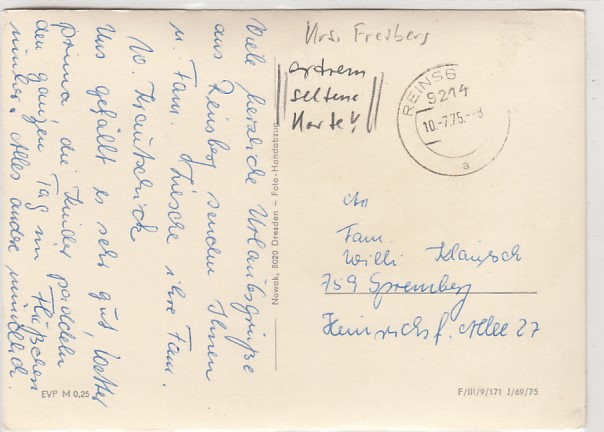 Viele herzliche Urlaubsgrüße
aus Reinsberg senden Ihnen
u. Fam. Ihre Fam.
W.
Uns gefällt es sehr gut, Wetter
prima, die Kinder paddeln
den ganzen Tag im Flüßchen
Alles andre mündlich.
EVP M 0,25
Nowak, 8020 Dresden – Foto-Handabzug
Krs. Freiberg
extrem
seltene
Karte!
REINSB
9214
10.-7.75.--8
a
An
Fam.
Willi
759 Spremberg
Heinrichsf. Allee 27
F/III/9/171 J/69/75